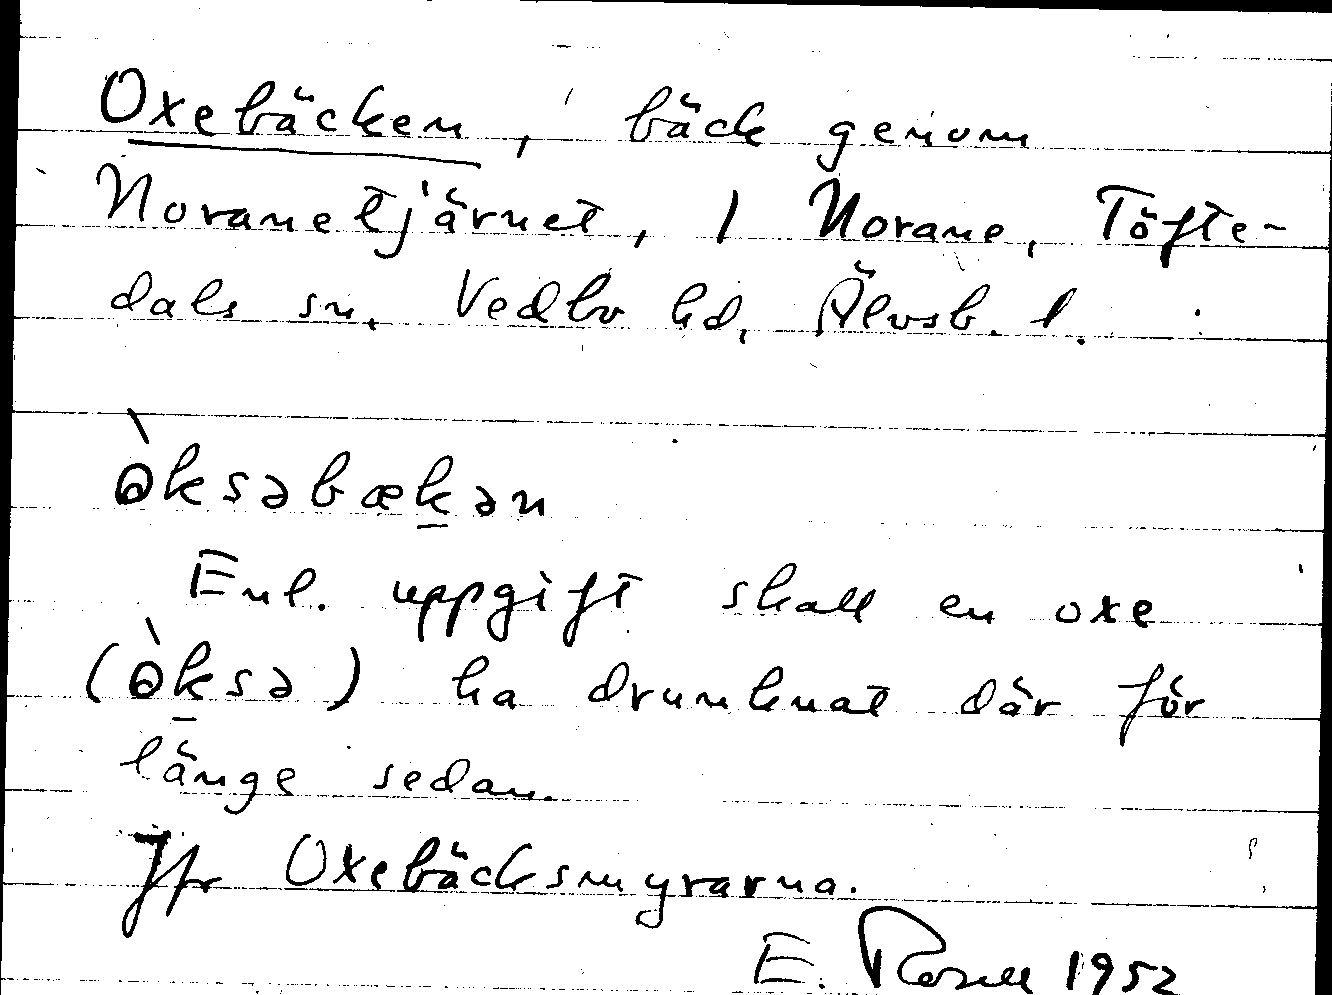 Oxebäcken, bäck genom
Noranetjärnet, 1 Norane, Töfte-
dals sn, Vedbo hd, Älvsb. l.
òksəbæk̲ən
Enl. uppgift skall en oxe
(òk̲sə) ha drunknat där för
länge sedan.
Jfr Oxebäcksmyrarna.
E. Rosell 1952